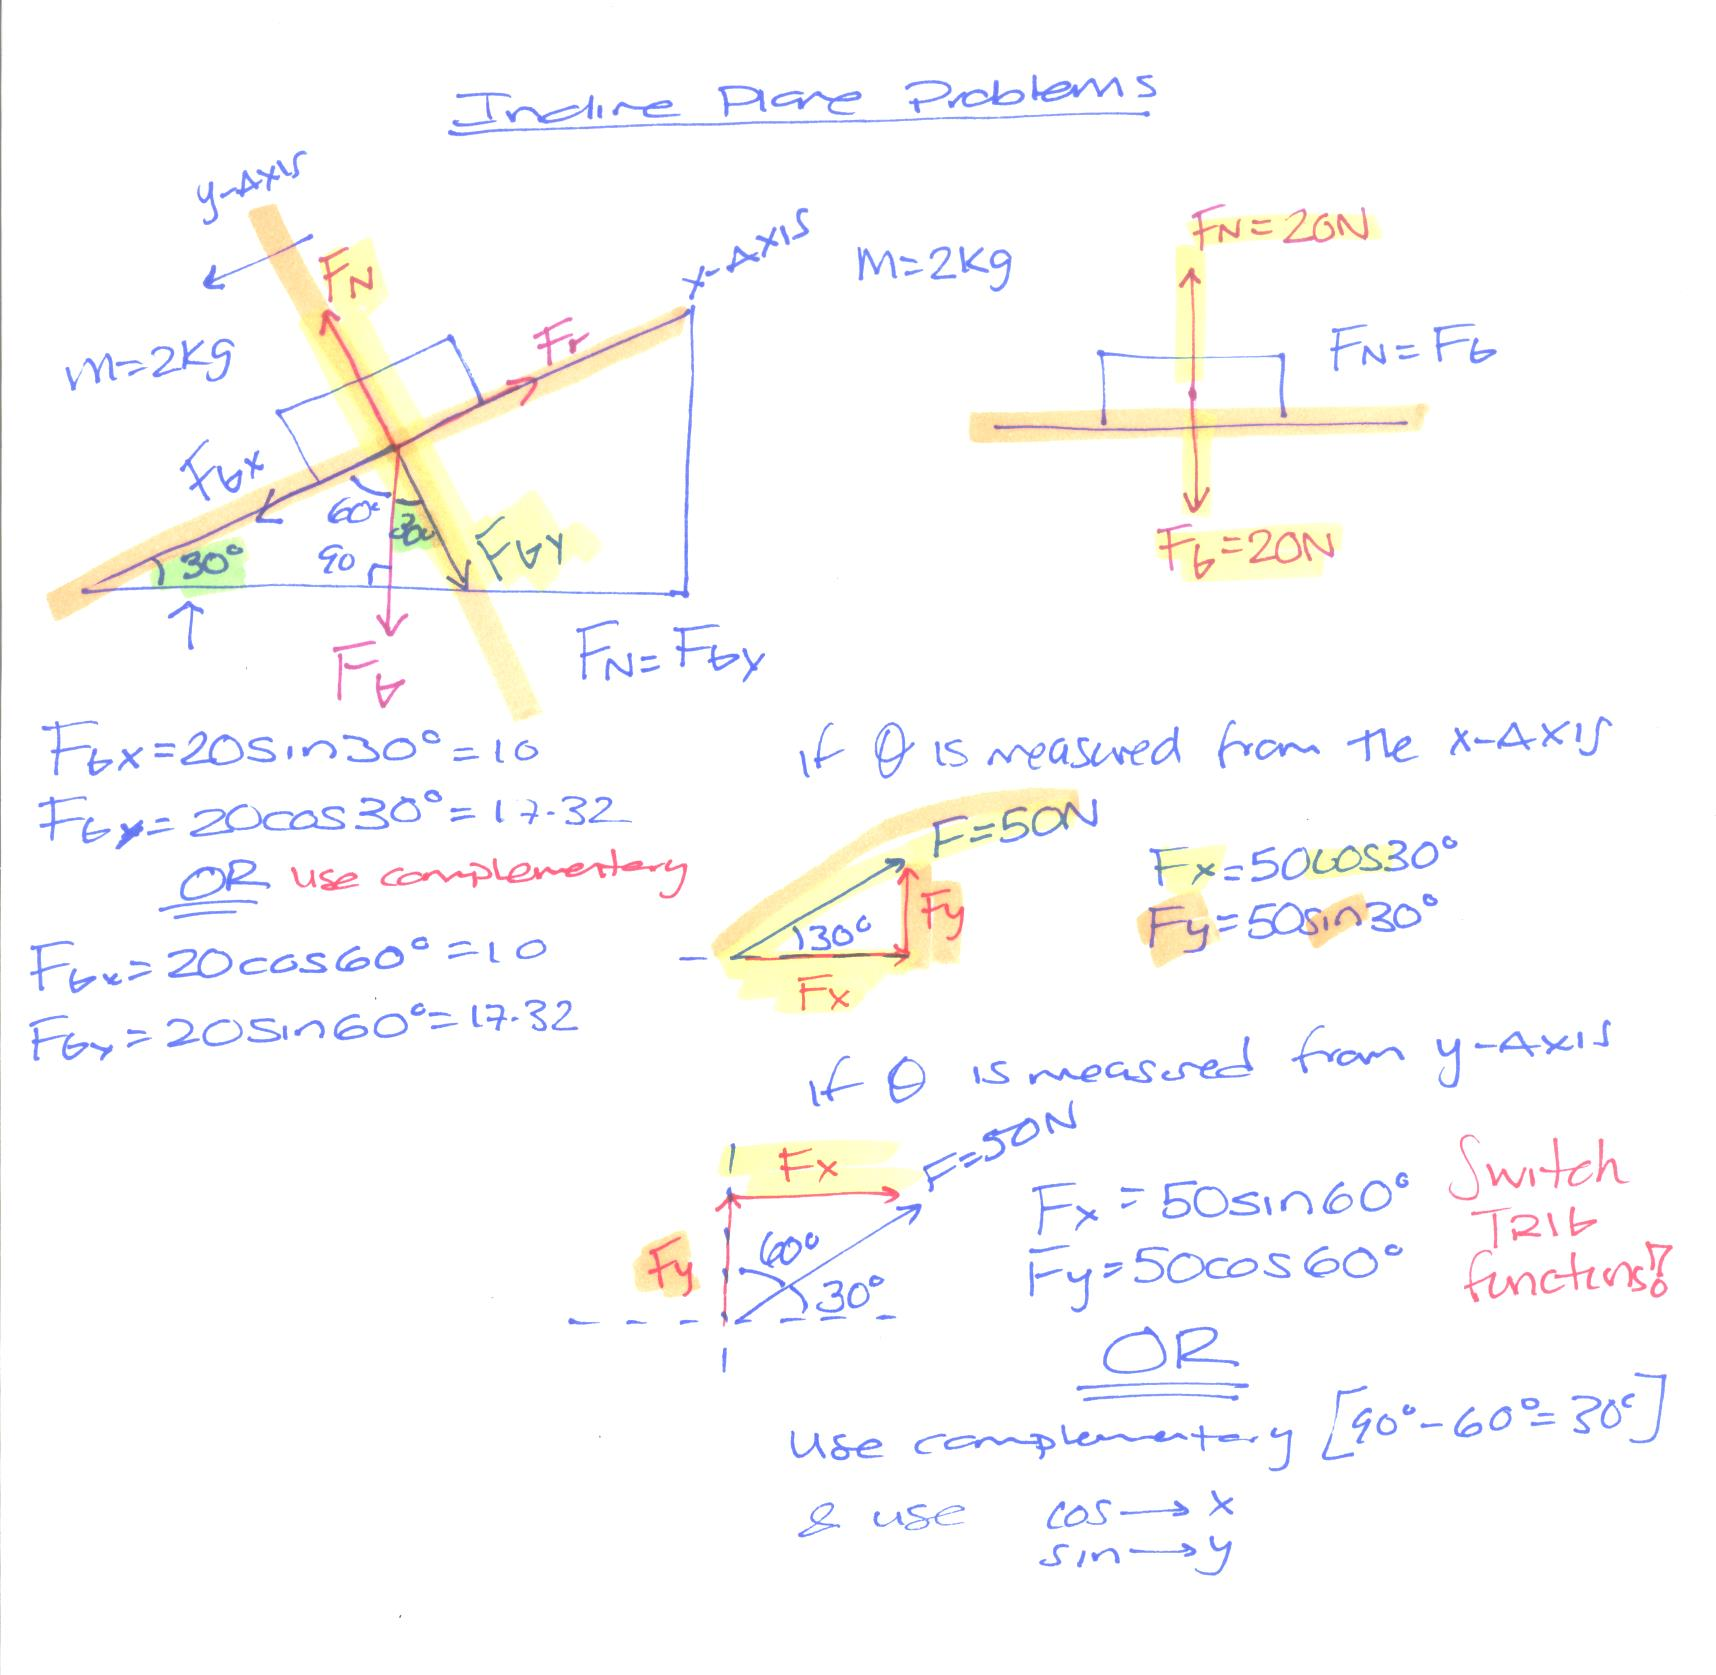 Incline Plane Problems
y-AXIS
x-AXIS
FN
Fr
m=2kg
FGX
60°
30
FGY
30°
90
FG
FN=FGY
M=2kg
FN=20N
FN=FG
FG=20N
FGX=20sin30°=10
FGY=20cos30°=17.32
OR use complementary
FGX=20cos60°=10
FGY=20sin60°=17.32
if θ is measured from the x-AXIS
F=50N
30°
Fy
Fx
Fx=50cos30°
Fy=50sin30°
if θ is measured from y-AXIS
Fx
F=50N
Fy
60°
30°
Fx=50sin60°
Fy=50cos60°
Switch
TRIG
functions!!
OR
use complementary [90°-60°=30°]
& use cos→x
sin→y